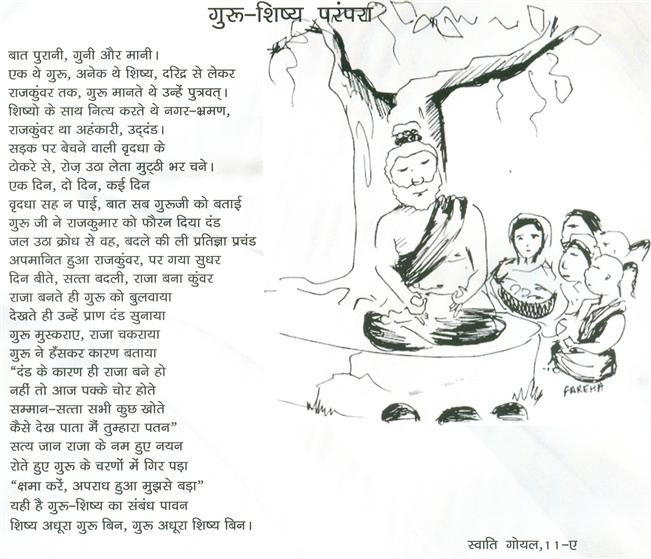 गुरू-शिष्य परंपरा
बात पुरानी, गुनी और मानी।
एक थे गुरू, अनेक थे शिष्य, दरिद्र से लेकर
राजकुंवर तक, गुरू मानते थे उन्हें पुत्रवत्।
शिष्यो के साथ नित्य करते थे नगर-भ्रमण,
राजकुंवर था अहंकारी, उद्दंड।
सड़क पर बेचने वाली वृदधा के
टोकरे से, रोज़ उठा लेता मुट्ठी भर चने।
एक दिन, दो दिन, कई दिन
वृदधा सह न पाई, बात सब गुरूजी को बताई
गुरू जी ने राजकुमार को फौरन दिया दंड
जल उठा क्रोध से वह, बदले की ली प्रतिज्ञा प्रचंड
अपमानित हुआ राजकुंवर, पर गया सुधर
दिन बीते, सत्ता बदली, राजा बना कुंवर
राजा बनते ही गुरू को बुलवाया
देखते ही उन्हें प्राण दंड सुनाया
गुरू मुस्कराए, राजा चकराया
गुरू ने हँसकर कारण बताया
“दंड के कारण ही राजा बने हो
नहीं तो आज पक्के चोर होते
सम्मान-सत्ता सभी कुछ खोते
कैसे देख पाता मैं तुम्हारा पतन”
सत्य जान राजा के नम हुए नयन
रोते हुए गुरू के चरणों में गिर पड़ा
“क्षमा करें, अपराध हुआ मुझसे बड़ा”
यही है गुरू-शिष्य का संबंध पावन
शिष्य अधूरा गुरू बिन, गुरू अधूरा शिष्य बिन।
FAREHA
स्वाति गोयल,11-ए